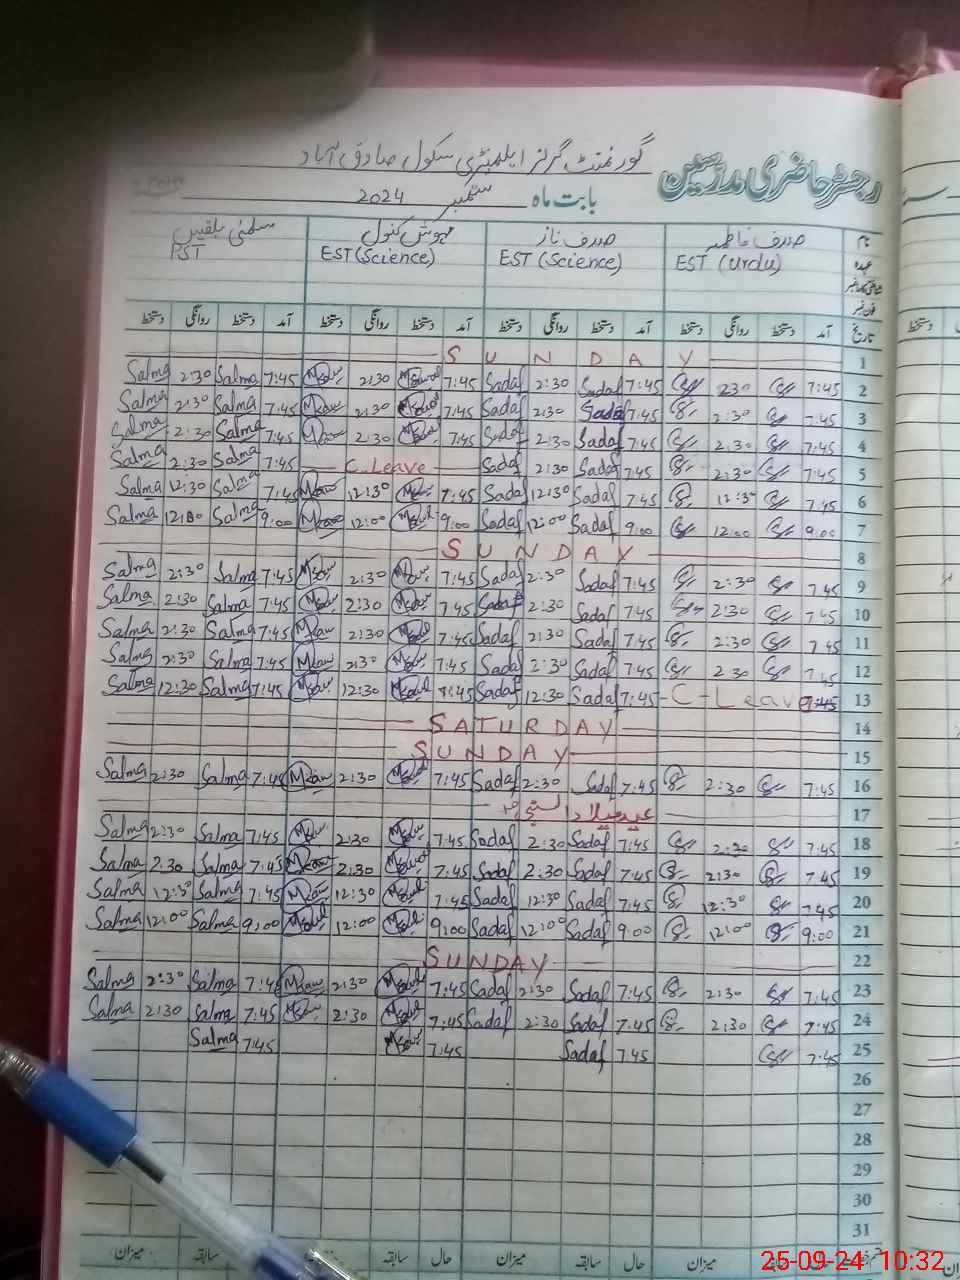 گورنمنٹ گرلز ایلیمنٹری سکول صادق آباد
رجسٹر حاضری مدرسین
بابت ماہ ستمبر 2024
نام صدف فاطمہ صدف ناز مہوش کنول سلمیٰ بلقیس
عہدہ EST (Urdu) EST (Science) EST (Science) PST
فون نمبر
تاریخ آمد دستخط روانگی دستخط آمد دستخط روانگی دستخط آمد دستخط روانگی دستخط آمد دستخط روانگی دستخط
SUNDAY 1
Salma 2:30 Salma 7:45 2:30 7:45 Sadaf 2:30 Sadaf 7:45 230 7:45 2
Salma 2:30 Salma 7:45 2:30 7:45 Sadaf 2:30 Sadaf 7:45 2:30 7:45 3
Salma 2:30 Salma 7:45 2:30 7:45 Sadaf 2:30 Sadaf 7:45 2:30 7:45 4
Salma 2:30 Salma 7:45 C.Leave Sadaf 2:30 Sadaf 7:45 2:30 7:45 5
Salma 12:30 Salma 7:45 12:30 7:45 Sadaf 12:30 Sadaf 7:45 12:30 7:45 6
Salma Salma 9:00 12:00 9:00 Sadaf 12:00 Sadaf 9:00 12:00 9:00 7
SUNDAY 8
Salma 2:30 Salma 7:45 2:30 7:45 Sadaf 2:30 Sadaf 7:45 2:30 7 45 9
Salma 2:30 Salma 7:45 2:30 7:45 Sadaf 2:30 Sadaf 7:45 2:30 7:45 10
Salma 2:30 Salma 7:45 2:30 7:45 Sadaf 2:30 Sadaf 7:45 2:30 7 45 11
Salma 2:30 Salma 7:45 2:30 7:45 Sadaf 2:30 Sadaf 7:45 2 30 7:45 12
Salma 12:30 Salma 7:45 12:30 7:45 Sadaf 12:30 Sadaf 7:45 C-Leave 13
SATURDAY 14
SUNDAY 15
Salma 2:30 Salma 7:45 2:30 7:45 Sadaf 2:30 Sadaf 7:45 2:30 7:45 16
عید میلاد النبیؐ 17
Salma 2:30 Salma 7:45 2:30 7:45 Sadaf 2:30 Sadaf 7:45 2:30 7:45 18
Salma 2:30 Salma 7:45 2:30 7:45 Sadaf 2:30 Sadaf 7:45 2:30 7:45 19
Salma 12:30 Salma 7:45 12:30 7:45 Sadaf 12:30 Sadaf 7:45 12:30 7:45 20
Salma 12:00 Salma 9:00 12:00 9:00 Sadaf 12:00 Sadaf 9:00 12:00 9:00 21
SUNDAY 22
Salma 2:30 Salma 7:45 2:30 7:45 Sadaf 2:30 Sadaf 7:45 2:30 7:45 23
Salma 2:30 Salma 7:45 2:30 7:45 Sadaf 2:30 Sadaf 7:45 2:30 7:45 24
Salma 7:45 7:45 Sadaf 7:45 7:45 25
26
27
28
29
30
31
حال سابقہ میزان حال سابقہ میزان حال سابقہ میزان
25-09-24 10:32